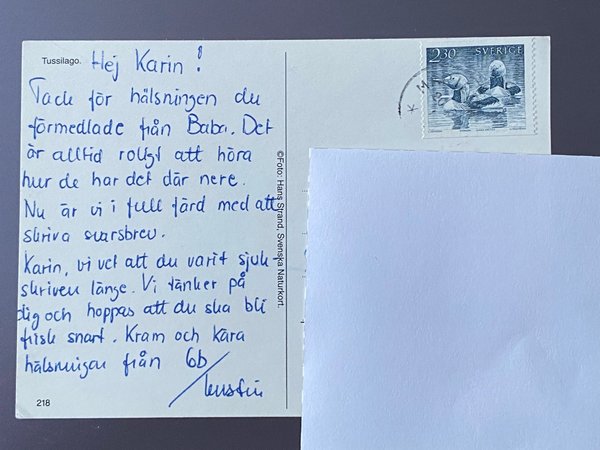 Tussilago.
Hej Karin!
Tack för hälsningen du
förmedlade från Baba. Det
är alltid roligt att höra
hur de har det där nere.
Nu är vi i full färd med att
skriva svarsbrev.
Karin, vi vet att du varit sjuk-
skriven länge. Vi tänker på
dig och hoppas att du ska bli
frisk snart. Kram och kära
hälsningar från 6b
218
©Foto: Hans Strand, Svenska Naturkort.
2.30 SVERIGE
K M